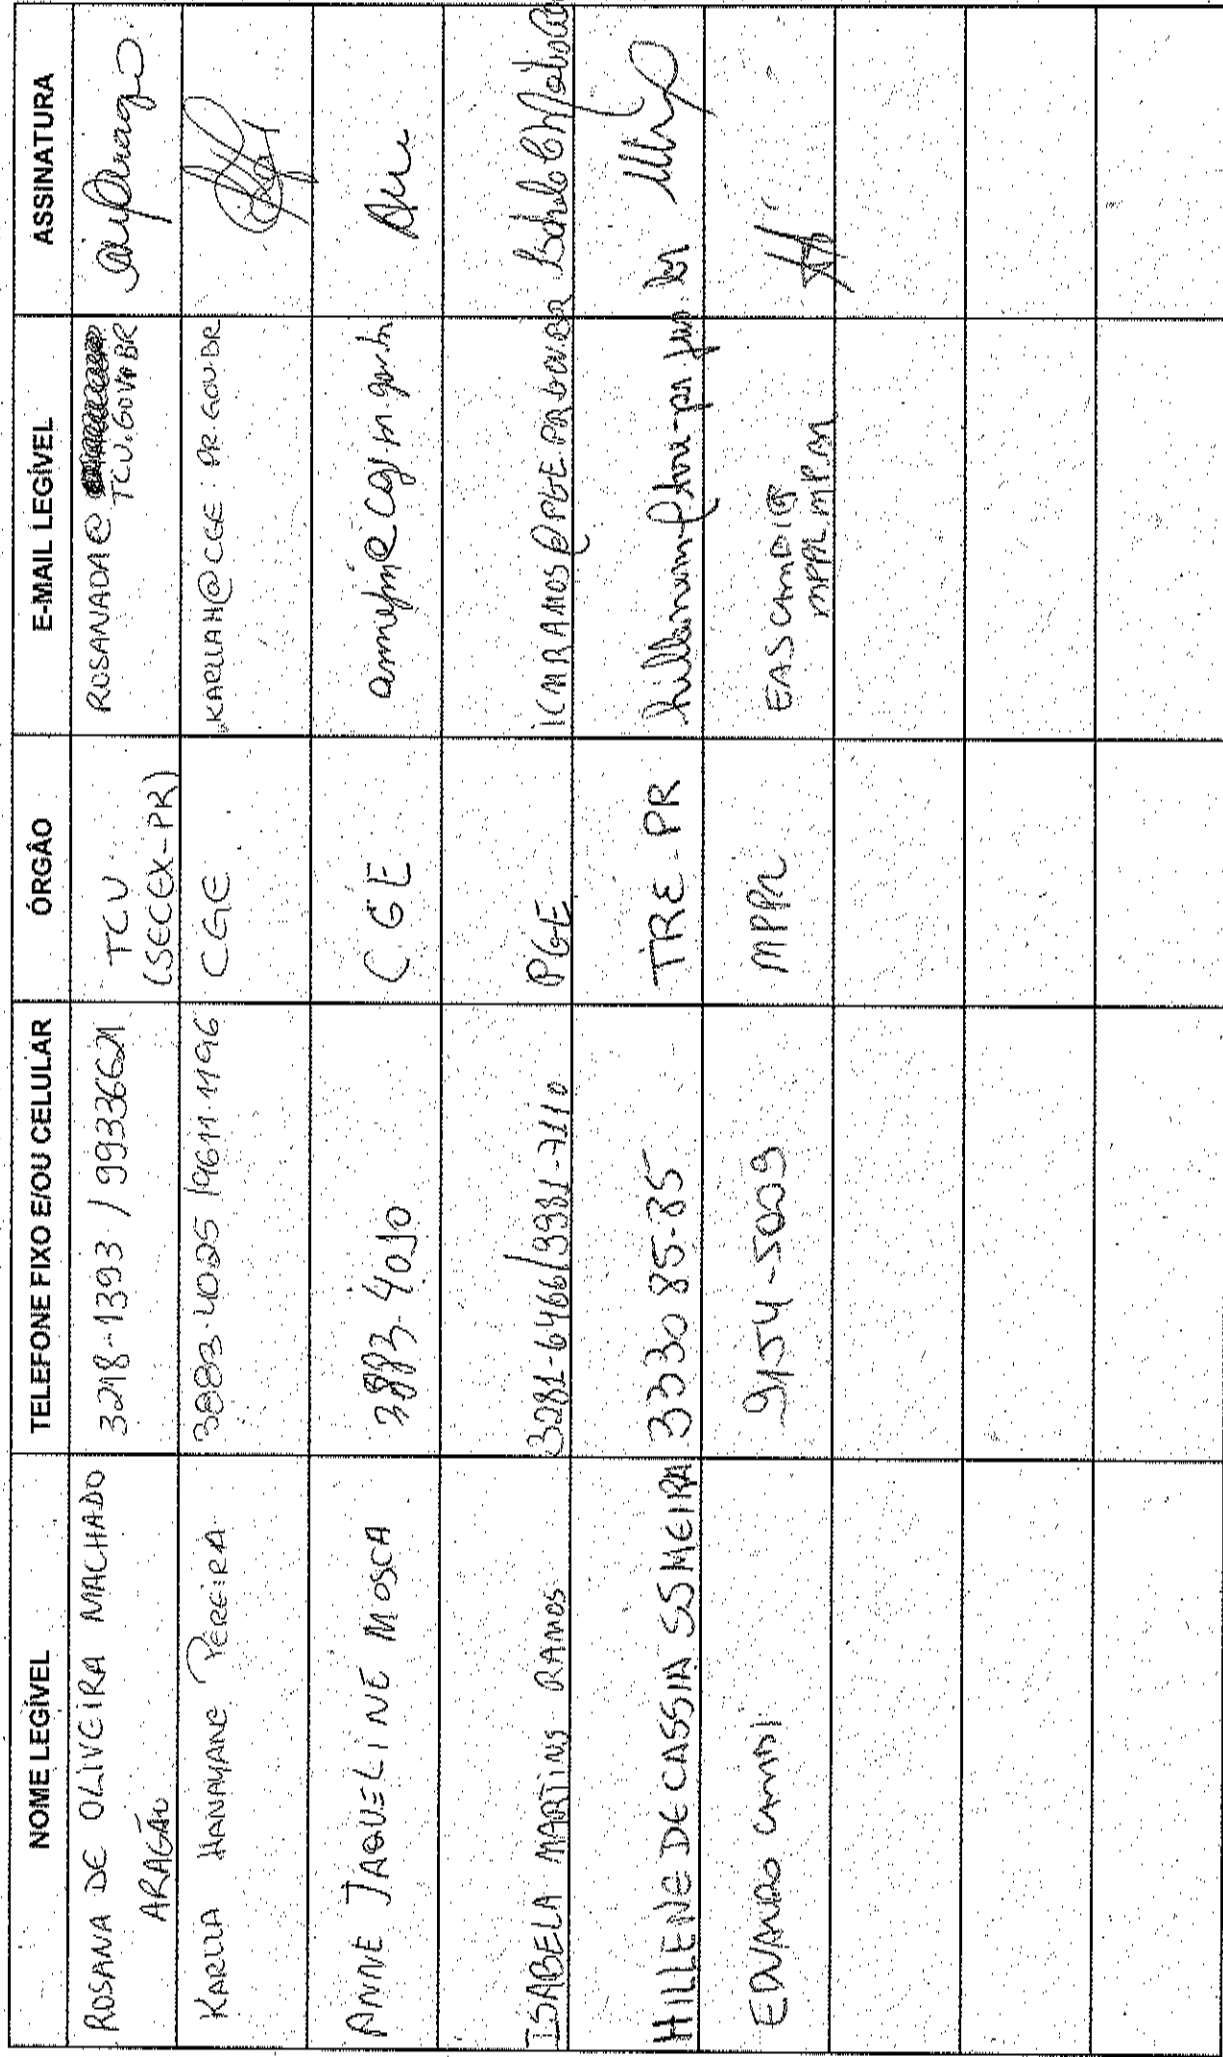 NOME LEGÍVEL TELEFONE FIXO E/OU CELULAR ÓRGÃO E-MAIL LEGÍVEL ASSINATURA
ROSANA DE OLIVEIRA MACHADO 3218-1393 / 99336621 TCU ROSANADA@
ARAGÃO (SECEX-PR) TCU.GOV.BR
KARLLA HANAYANE PEREIRA 3883.4025 / 9611.1196 CGE KARLLAH@CGE.PR.GOV.BR
ANNE JAQUELINE MOSCA 3883-4010 CGE
ISABELA MARTINS RAMOS 3281-6466/9981-7110 PGE ICMRAMOS@PGE.PR.GOV.BR
HILLENE DE CASSIA SS MEIRA 3330 85-85 TRE-PR
EDUARDO CAMBI 9154-5009 MPPR EASCAMBI@